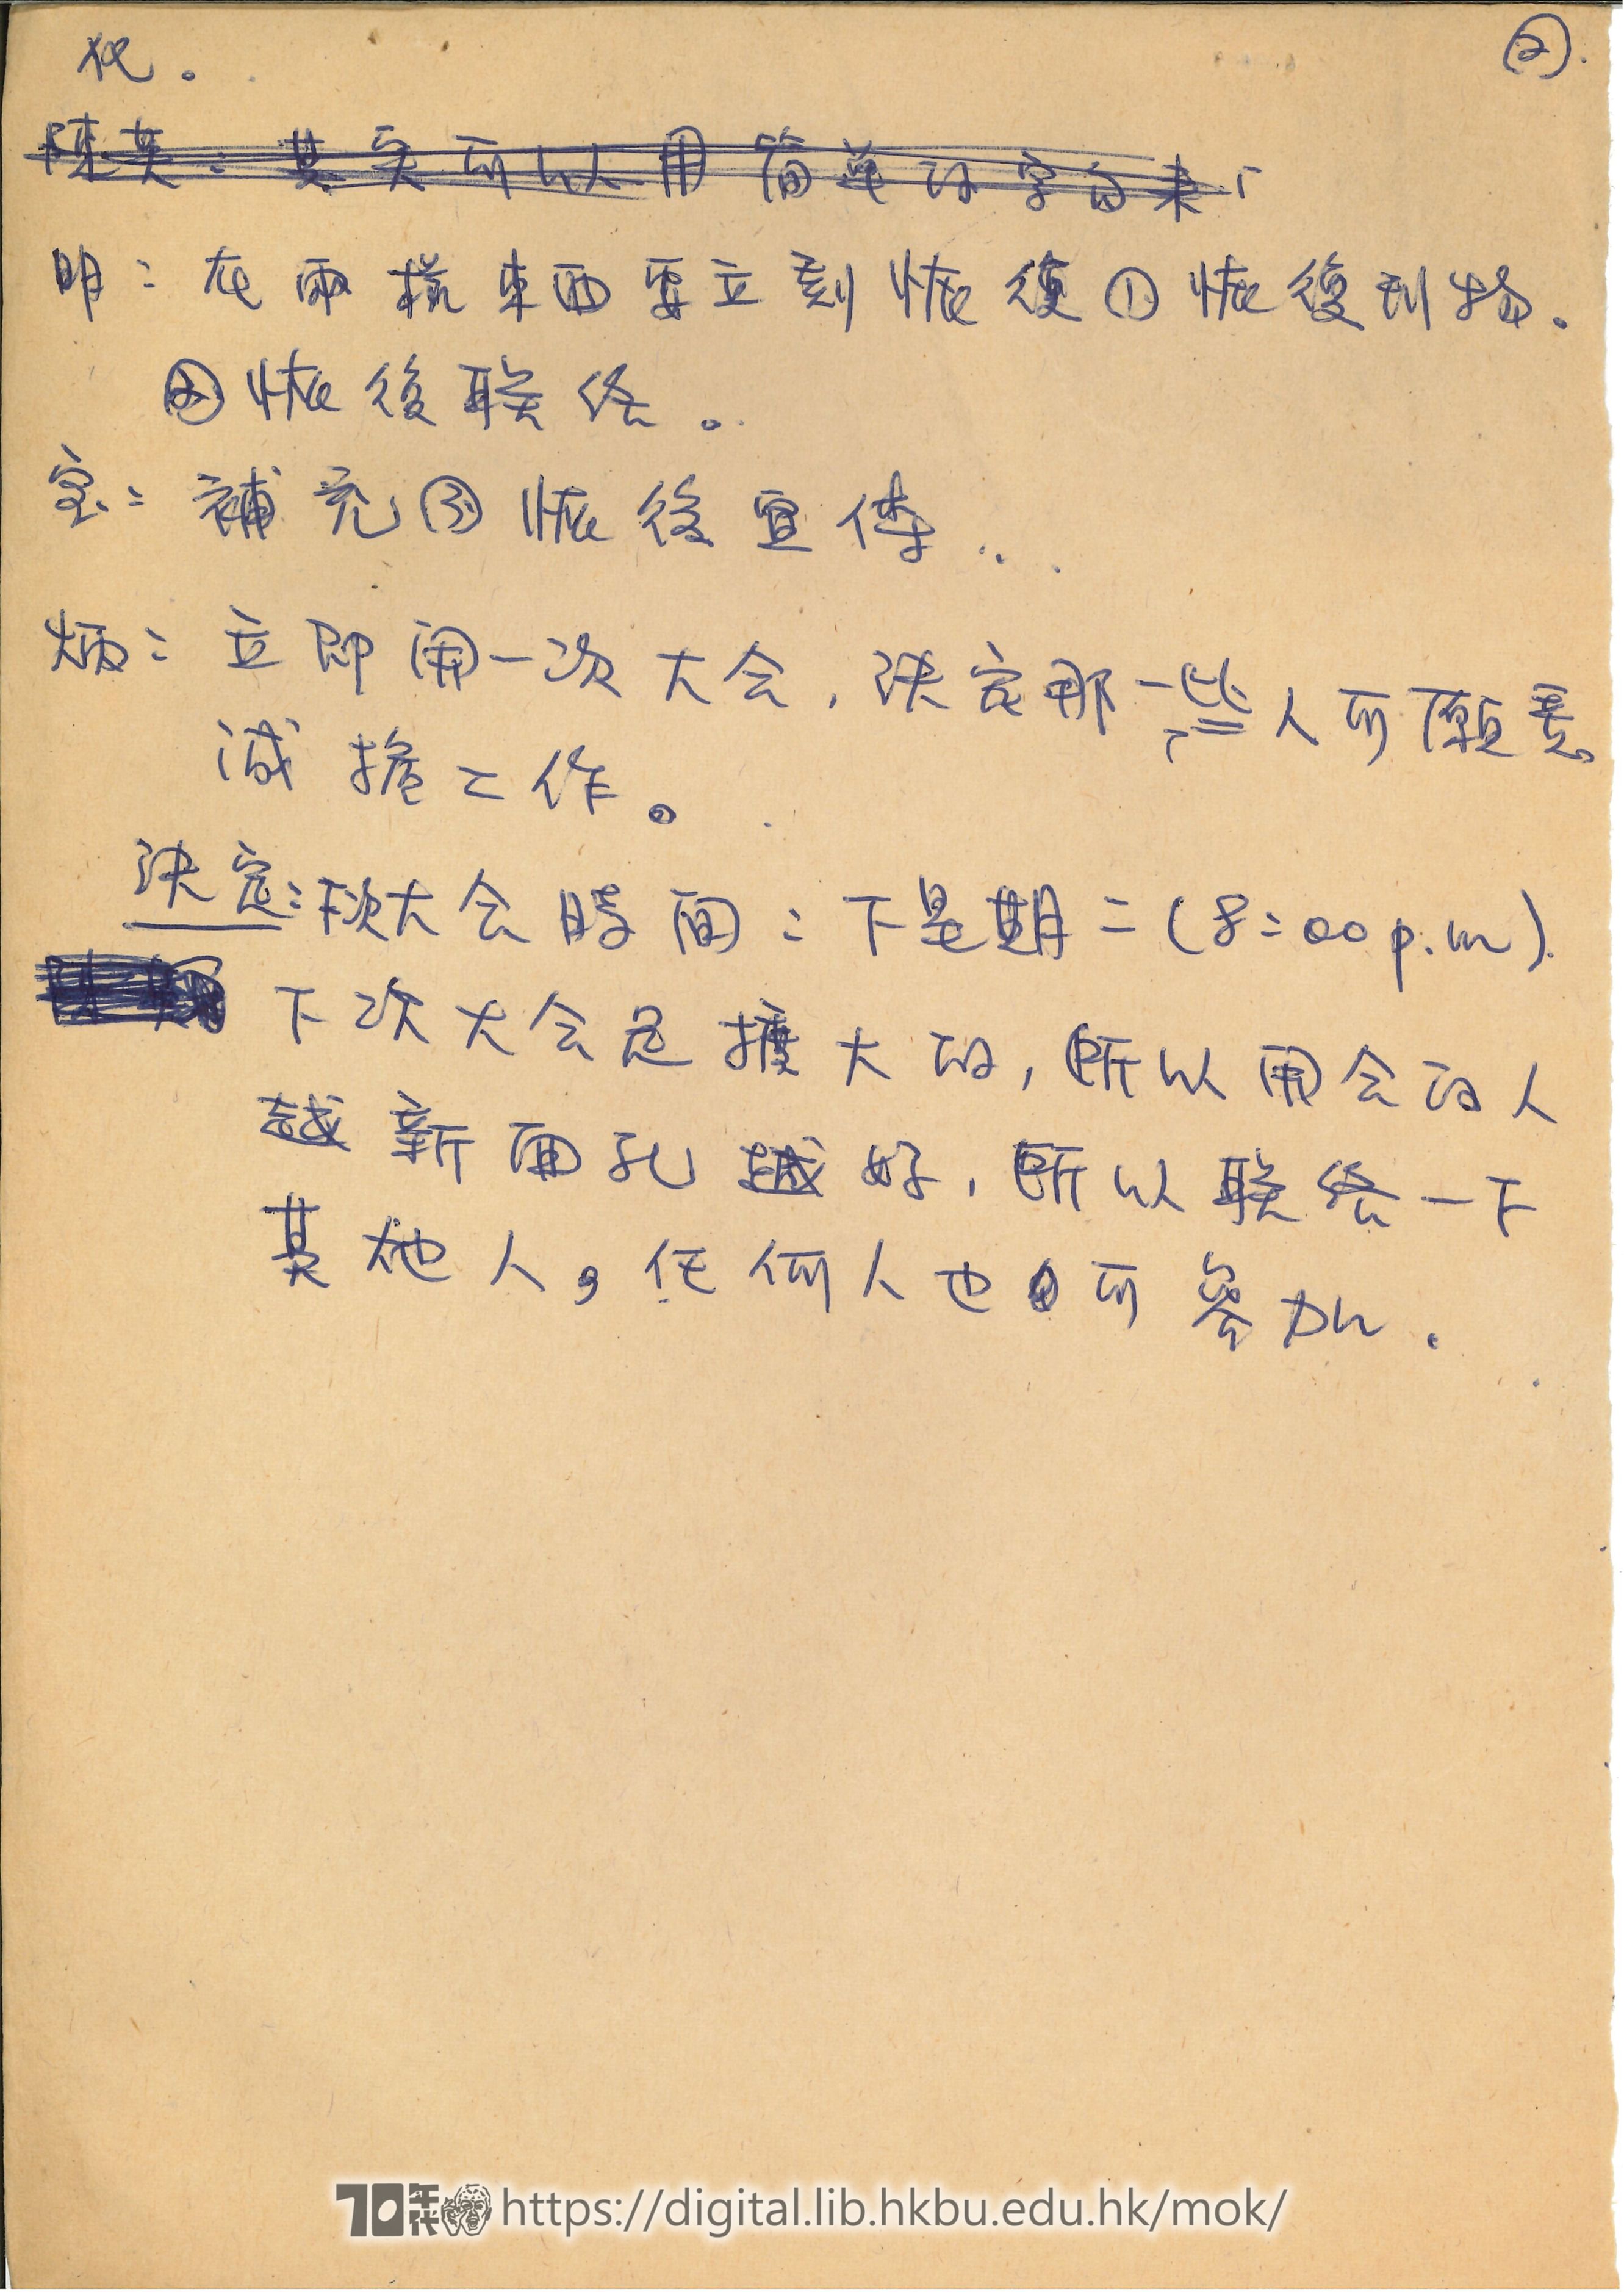 化。
②.
陳英：其实可以用简单的字句来
明：在兩樣東西要立刻恢復①恢復刊物.
②恢後联络。
宝：補充③恢後宣傳..
炳：立即開一次大会,决定那一些人可願意
減擔工作。
决定：下次大会時間：下星期二(8:00 p.m).
下次大会是擴大的,所以開会的人
越新面孔越好,所以联络一下
其他人,任何人也可参加.
70年代 https://digital.lib.hkbu.edu.hk/mok/